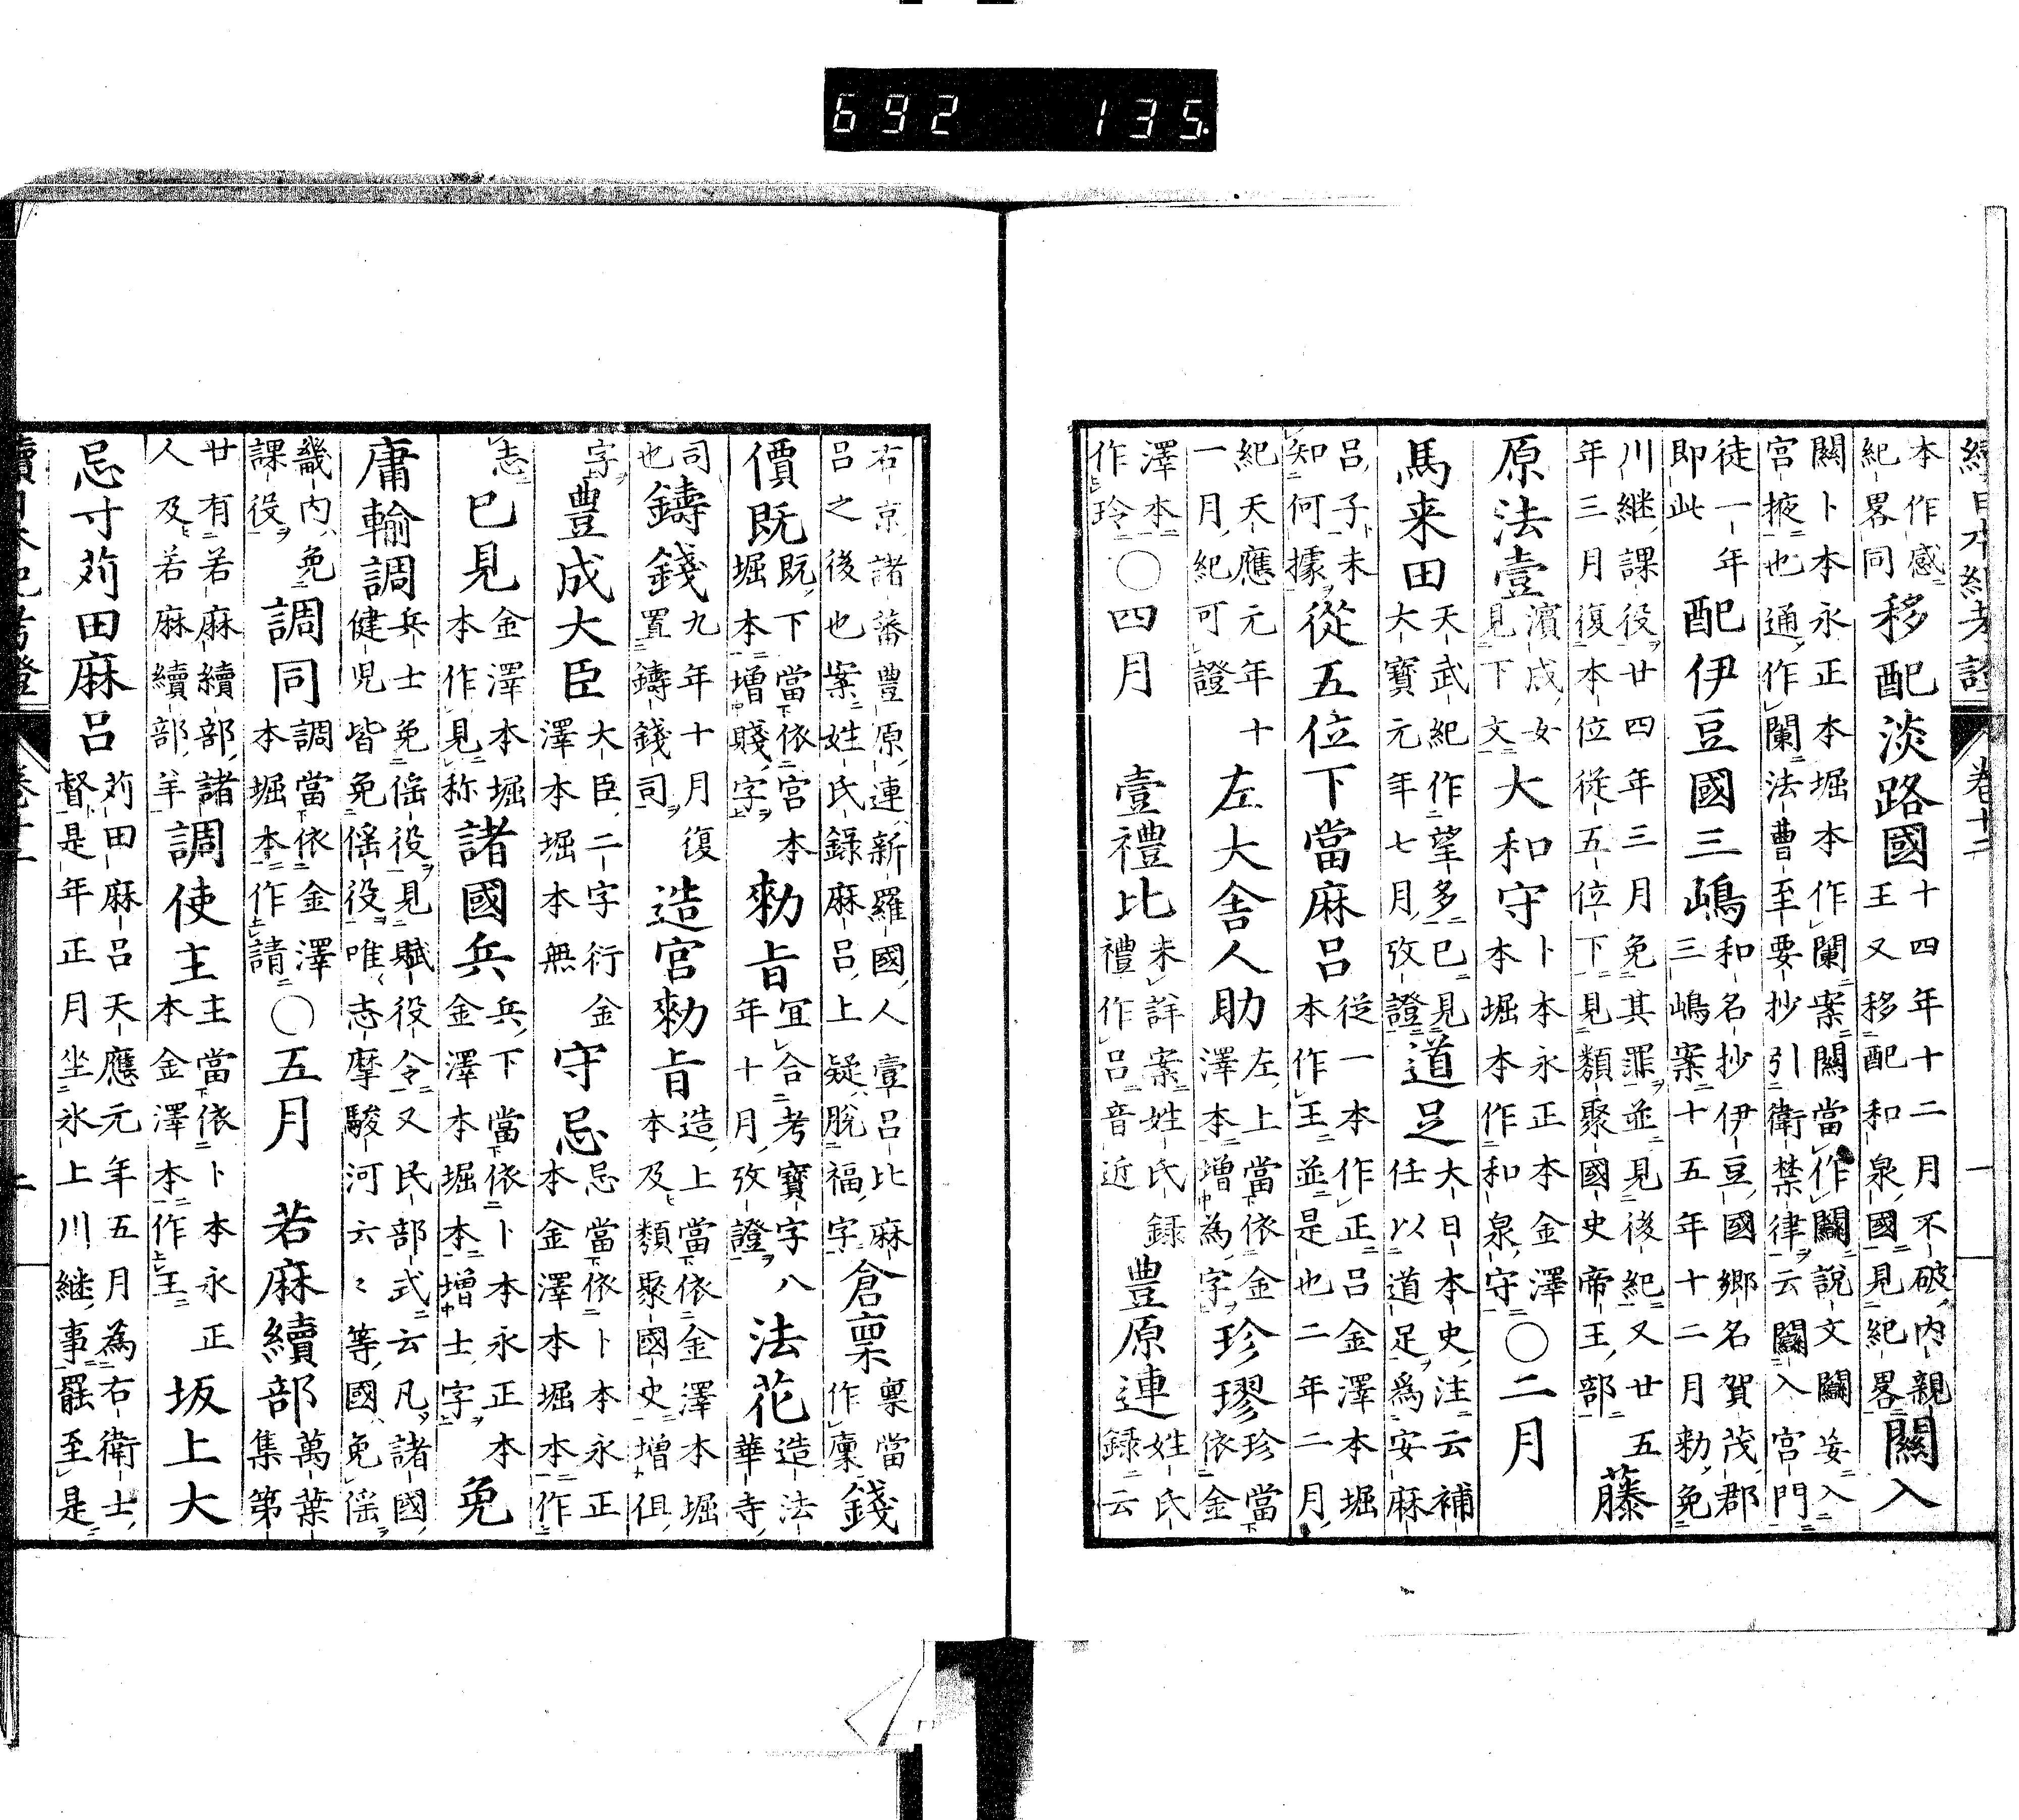 續日本紀考證 卷十二 一
本作感
紀畧同
移配淡路國
十四年十二月不破内親
王又移配和泉國見紀畧
闌入
闕卜本永正本堀本作闌案闕當作䦨說文䦨妄入
宮掖也通作闌法曹至要抄引衛禁律云闌入宮門
徒一年
即此
配伊豆國三嶋
和名抄伊豆國郷名賀茂郡
三嶋案十五年十二月勑免
川継課役廿四年三月免其罪並見後紀又廿五
年三月復本位從五位下見類聚國史帝王部
藤
原法壹
濱成女
見下文
大和守
卜本永正本金澤
本堀本作和泉守
〇二月
馬来田
天武紀作望多已見
大寶元年七月攷證
道足
大日本史注云補
任以道足爲安麻
呂子未
知何據
從五位下當麻呂
從一本作正呂金澤本堀
本作王並是也二年二月
紀天應元年十
一月紀可證
左大舎人助
左上當依金
澤本増為字
珍璆
珍當
依金
澤本
作玲
〇四月 壹禮比
未詳案姓氏録
禮作呂音近
豊原連
姓氏
録云
右京諸蕃豊原連新羅國人壹呂比麻
呂之後也案姓氏録麻呂上疑脫福字
倉稟
稟當
作廩
錢
價既
既下當依宮本
堀本増賤字
勑旨
宜合考寳字八
年十月攷證
法花
造法
華寺
司
也
鑄錢
九年十月復
置鑄錢司
造宮勑旨
造上當依金澤本堀
本及類聚國史増但
字
豊成大臣
大臣二字衍金
澤本堀本無
守忌
忌當依卜本永正
本金澤本堀本作
志
已見
金澤本堀
本作見称
諸國兵
兵下當依卜本永正本
金澤本堀本増士字
免
庸輸調
兵士免徭役見賦役令又民部式云凡諸國
健児皆免徭役唯志摩駿河六〻等國免徭
畿内免
課役
調同
調當依金澤
本堀本作請
〇五月 若麻續部
萬葉
集第
廿有若麻續部諸
人及若麻續部羊
調使主
主當依卜本永正
本金澤本作王
坂上大
忌寸苅田麻呂
苅田麻呂天應元年五月為右衛士
督是年正月坐氷上川継事罷至是